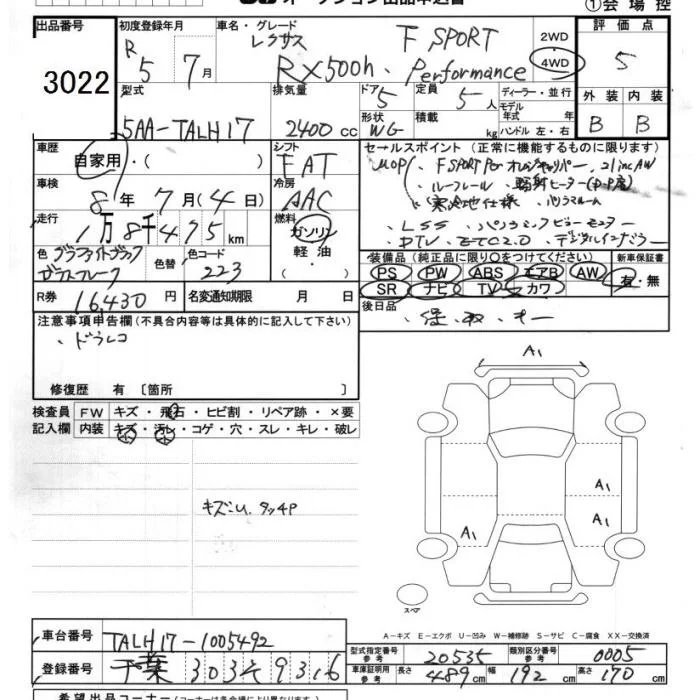 ①会場控
出品番号
3022
初度登録年月
R 5 7月
車名・グレード
レクサス F SPORT
RX500h. Performance
2WD
4WD
評価点
5
型式
5AA-TALH17
排気量
2400cc
ドア
5
形状
WG
定員
5人
積載
kg
ディーラー・並行
モデル
年式 年
ハンドル 左・右
外装 内装
B B
車歴
自家用・( )
シフト
FAT
車検
8年7月(4日)
冷房
AAC
走行
1万8千475km
燃料
ガソリン
軽油
・( )
色
グラファイトブラック
色替
色コード
223
R券
16,430円
名変通知期限 月 日
セールスポイント(正常に機能するものに限ります)
・ルーフレール
・寒冷地仕様
・LSS ・パノラミックビューモニター
・DTV・ETC2.0 ・デジタルインナミラー
装備品(純正品に限り○をつけてください)
PS PW ABS エアB AW
SR ナビ TV カワ
新車保証書
有・無
後日品
注意事項申告欄(不具合内容等は具体的に記入して下さい)
・ドラレコ
修復歴 有〔箇所 〕
検査員
記入欄
FW キズ・飛石・ヒビ割・リペア跡・×要
内装 キズ・汚レ・コゲ・穴・スレ・キレ・破レ
A1
A1
A1
A1
スペア
A-キズ E-エクボ U-凹み W-補修跡 S-サビ C-腐食 XX-交換済
車台番号
TALH17-1005492
登録番号
千葉 303 そ 9316
型式指定番号
参考
20535
類別区分番号
参考
0005
車庫証明用
参考
長さ 489cm 幅 192cm 高さ 170cm
希望出品コーナー